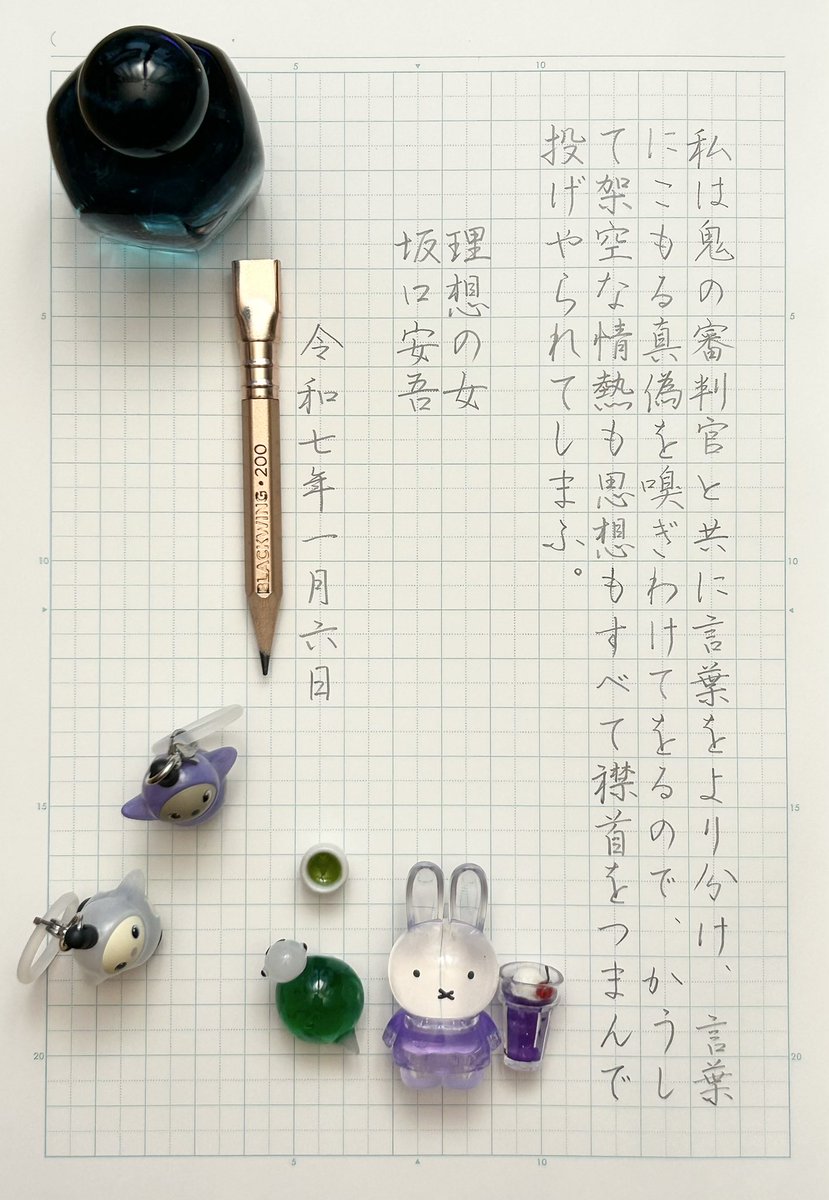 私は鬼の審判官と共に言葉をより分け、言葉
にこもる真偽を嗅ぎわけてをるので、かうし
て架空な情熱も思想もすべて襟首をつまんで
投げやられてしまふ。
理想の女
坂口安吾
令和七年一月六日
BLACKWING・200
5
10
5
10
15
20
5
10
15
20
5
10